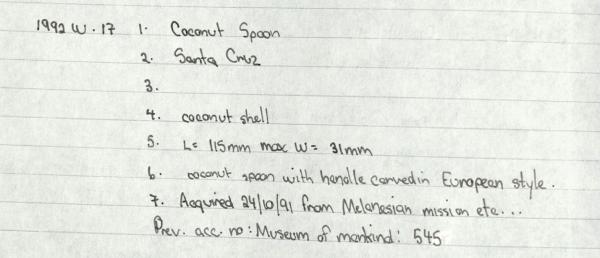 1992 W. 17 1. Coconut Spoon
2. Santa Cruz
3.
4. coconut shell
5. L= 115mm max W= 31mm
6. coconut spoon with handle carved in European style.
7. Acquired 24/10/91 from Melanesian mission etc...
Prev. acc. no: Museum of mankind: 545